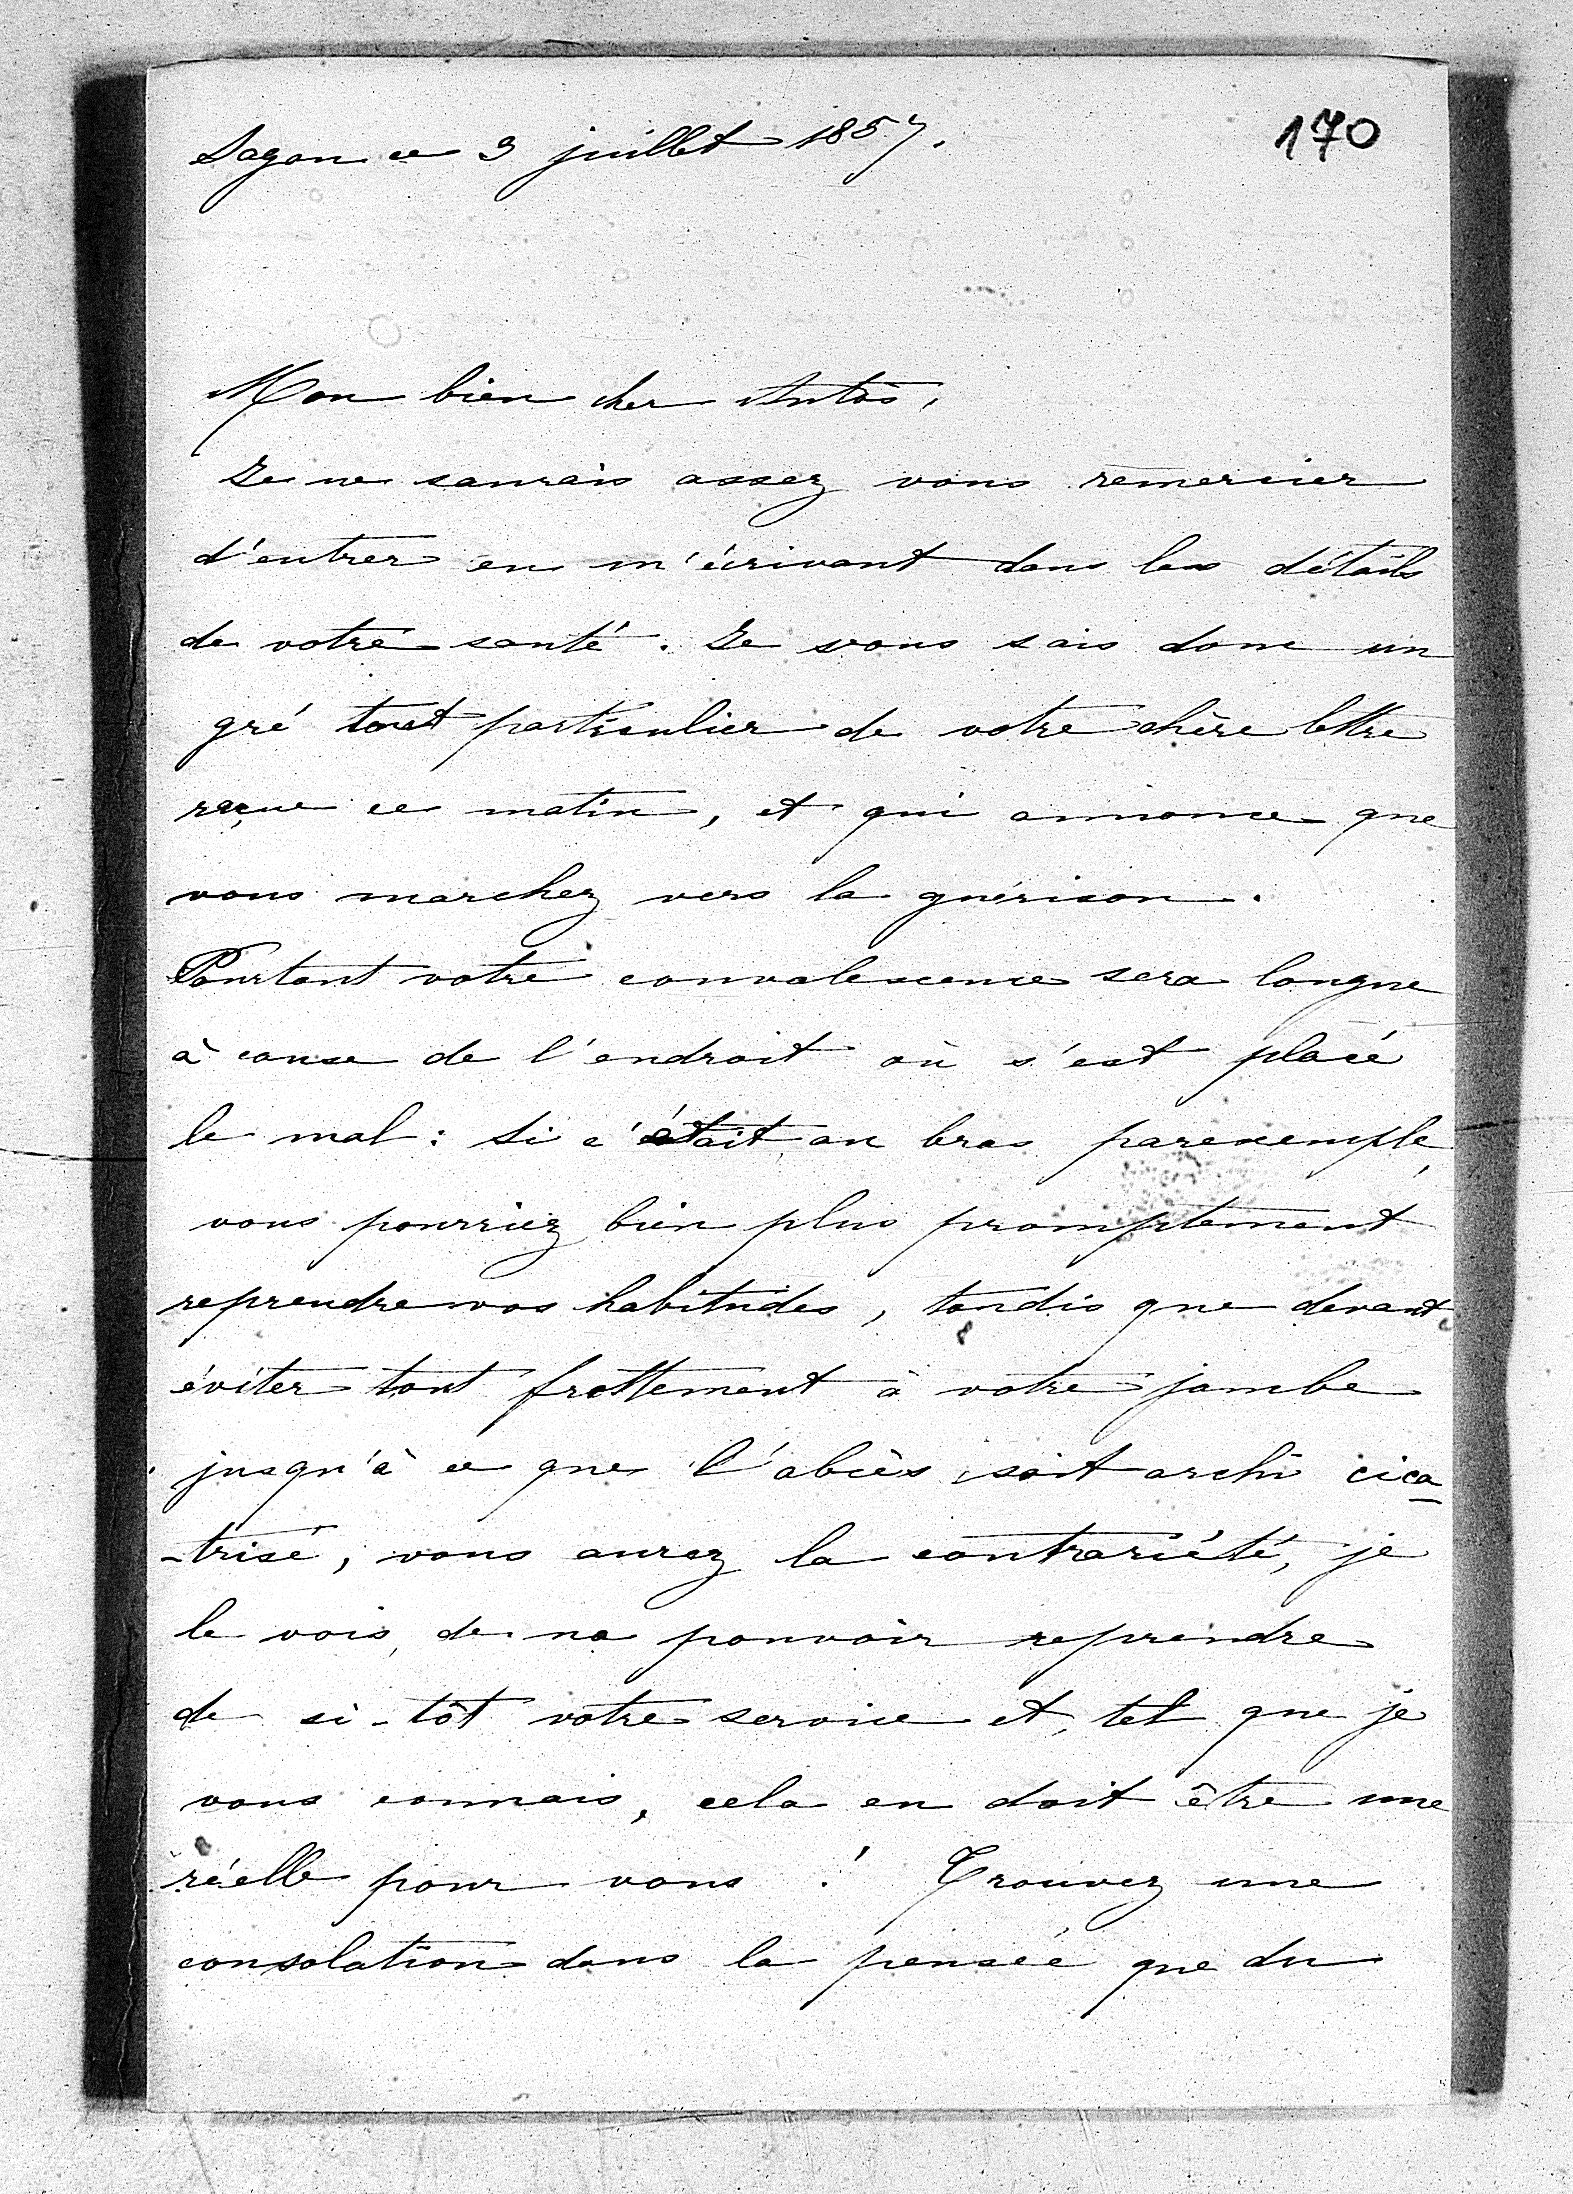 Sagan ce 3 juillet 1857.
170
Mon bien cher Antos,
Je ne saurais assez vous remercier
d'entrer en m'écrivant dans les détails
de votre santé. Je vous sais donc un
gré tout particulier de votre chère lettre
reçue ce matin, et qui annonce que
vous marchez vers la guérison.
Pourtant votre convalescence sera longue
à cause de l'endroit où s'est placé
le mal: si c'était au bras parexemple,
vous pourriez bien plus promptement
reprendre vos habitudes, tandis que devant
éviter tout frottement à votre jambe
jusqu'à ce que l'abcès soit archi cica
-trisé, vous aurez la contrariété, je
le vois, de ne pouvoir reprendre
de si-tôt votre service et, tel que je
vous connais, cela en doit être une
réelle pour vous ! Trouvez une
consolation dans la pensée que du